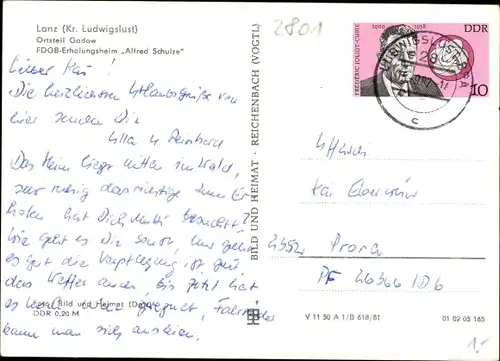 Lanz (Kr. Ludwigslust)
Ortsteil Gadow
FDGB-Erholungsheim „Alfred Schulze"
2801
Lieber Kai!
Die herzlichsten Urlaubsgrüße von
hier senden Dir
Ulla u. Reinhard
Das Heim liegt mitten im Wald,
sehr ruhig das richtige zum Er-
holen hat Dich Mutti besucht?
Wie geht es Dir sonst, uns geht
es gut die Verpflegung ist gut,
das Wetter auch, bis jetzt hat
es
kann man sich ausleihen.
Foto: Bild und Heimat
DDR 0,20 M
BILD UND HEIMAT · REICHENBACH (VOGTL)
FRÉDÉRIC JOLIOT-CURIE
1900 1958
DDR
10
LUDWIGSLUST
c
Kai
Prora
PF
V 11 50 A 1/B 618/81
01 02 05 165
1.-